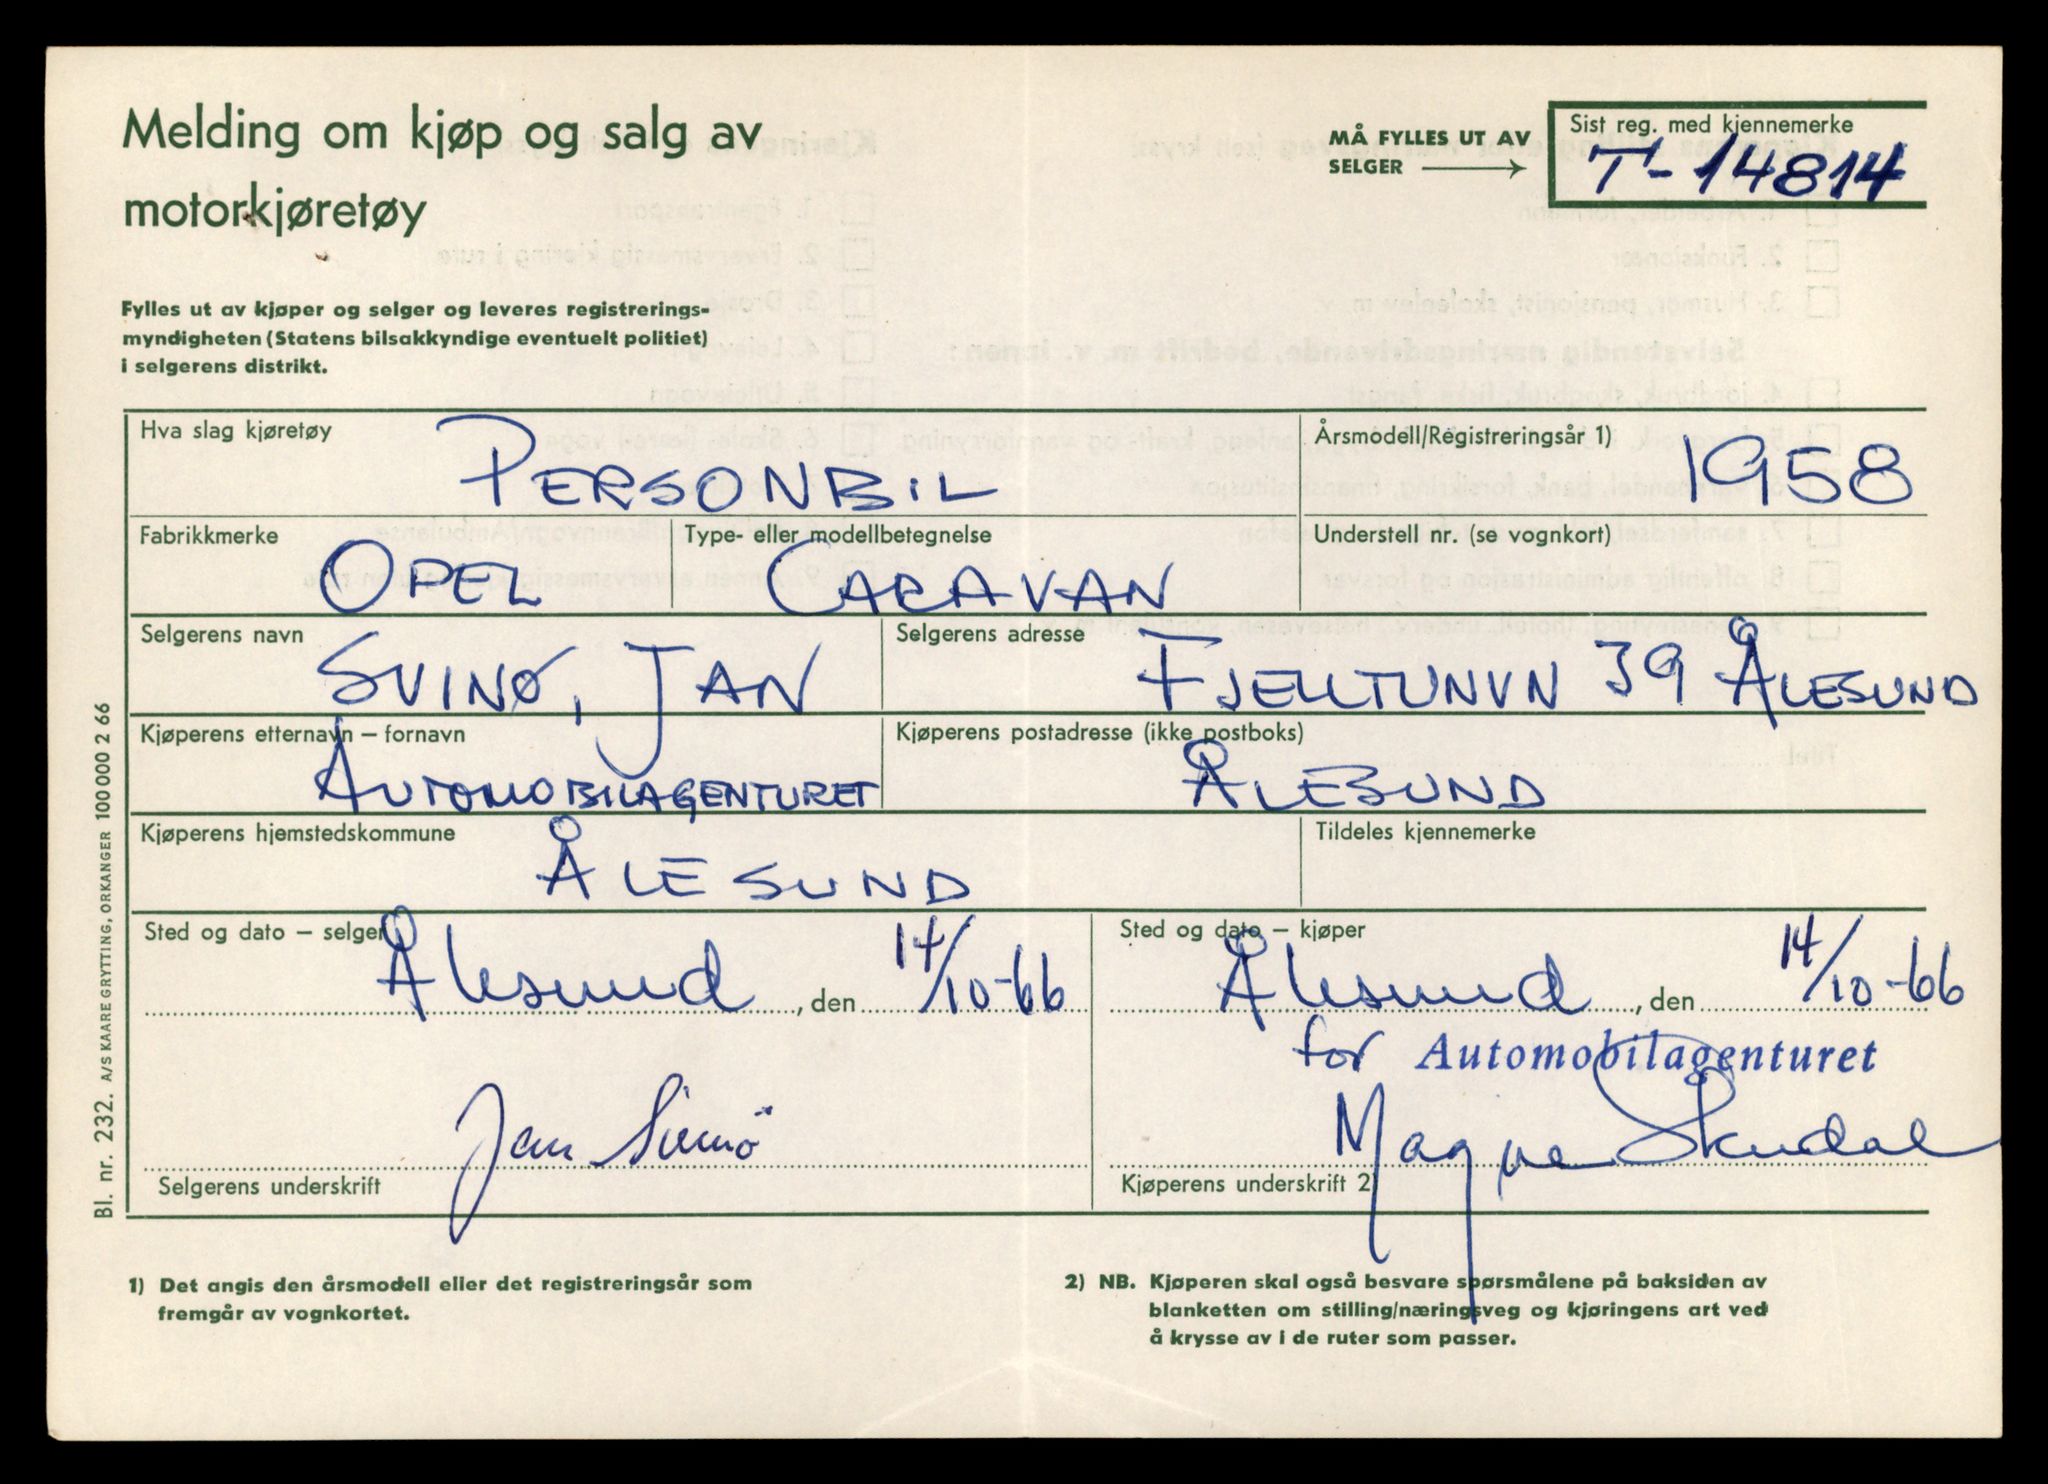 Melding om kjøp og salg av
motorkjøretøy
MÅ FYLLES UT AV
SELGER
Sist reg. med kjennemerke
T-14814
Fylles ut av kjøper og selger og leveres registrerings-
myndigheten (Statens bilsakkyndige eventuelt politiet)
i selgerens distrikt.
Hva slag kjøretøy
PERSONBIL
Årsmodell/Registreringsår 1)
1958
Fabrikkmerke
OPEL
Type- eller modellbetegnelse
CARAVAN
Understell nr. (se vognkort)
Selgerens navn
SVINØ, JAN
Selgerens adresse
FJELLTUNVN 39 ÅLESUND
Kjøperens etternavn – fornavn
AUTOMOBILAGENTURET
Kjøperens postadresse (ikke postboks)
ÅLESUND
Kjøperens hjemstedskommune
ÅLESUND
Tildeles kjennemerke
Sted og dato – selger
Ålesund, den 14/10-66
Sted og dato – kjøper
Ålesund, den 14/10-66
for Automobilagenturet
Jan Svinö
Magne Skudal
Selgerens underskrift
Kjøperens underskrift 2)
1) Det angis den årsmodell eller det registreringsår som
fremgår av vognkortet.
2) NB. Kjøperen skal også besvare spørsmålene på baksiden av
blanketten om stilling/næringsveg og kjøringens art ved
å krysse av i de ruter som passer.
Bl. nr. 232. A/S KAARE GRYTTING, ORKANGER 100 000 2 66